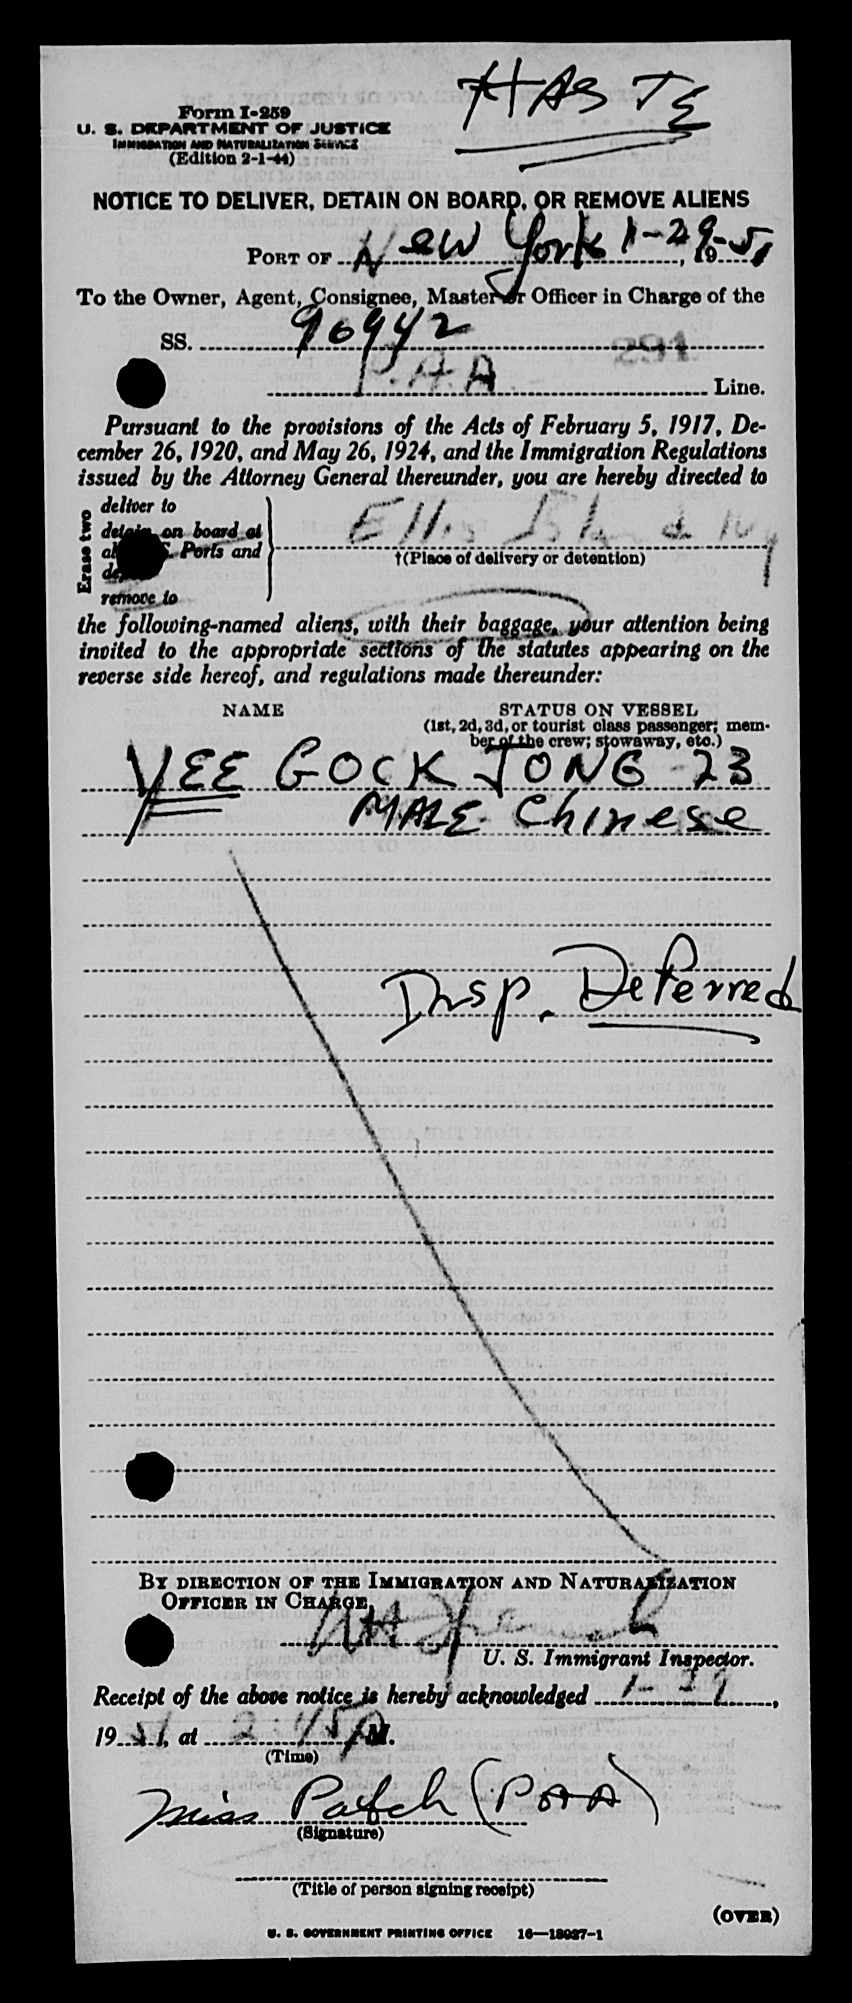 HASTE
Form I-259
U. S. DEPARTMENT OF JUSTICE
IMMIGRATION AND NATURALIZATION SERVICE
(Edition 2-1-44)
NOTICE TO DELIVER, DETAIN ON BOARD, OR REMOVE ALIENS
PORT OF New York 1-29-, 1951
To the Owner, Agent, Consignee, Master or Officer in Charge of the
SS. 90942
291
P.A.A. Line.
Pursuant to the provisions of the Acts of February 5, 1917, De-
cember 26, 1920, and May 26, 1924, and the Immigration Regulations
issued by the Attorney General thereunder, you are hereby directed to
Erase two
deliver to
detain on board at
Ports and
remove to
Ellis Island NY
†(Place of delivery or detention)
the following-named aliens, with their baggage, your attention being
invited to the appropriate sections of the statutes appearing on the
reverse side hereof, and regulations made thereunder:
NAME
STATUS ON VESSEL
(1st, 2d, 3d, or tourist class passenger; mem-
ber of the crew; stowaway, etc.)
YEE GOCK JONG - 23
MALE - Chinese
Insp. Deferred
BY DIRECTION OF THE IMMIGRATION AND NATURALIZATION
OFFICER IN CHARGE,
U. S. Immigrant Inspector.
Receipt of the above notice is hereby acknowledged 1-29,
1951, at 2:45 P M.
(Time)
Miss Patch (PAA)
(Signature)
(Title of person signing receipt)
(OVER)
U. S. GOVERNMENT PRINTING OFFICE 16—18027-1